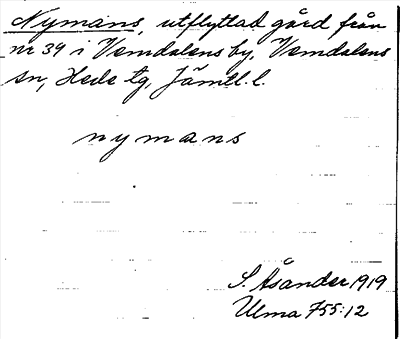 Nymans, utflyttad gård från
nr 39 i Vemdalens by, Vemdalens
sn, Hede tg, Jämtl. l.
nymans
S. Åsander 1919
Ulma 755:12